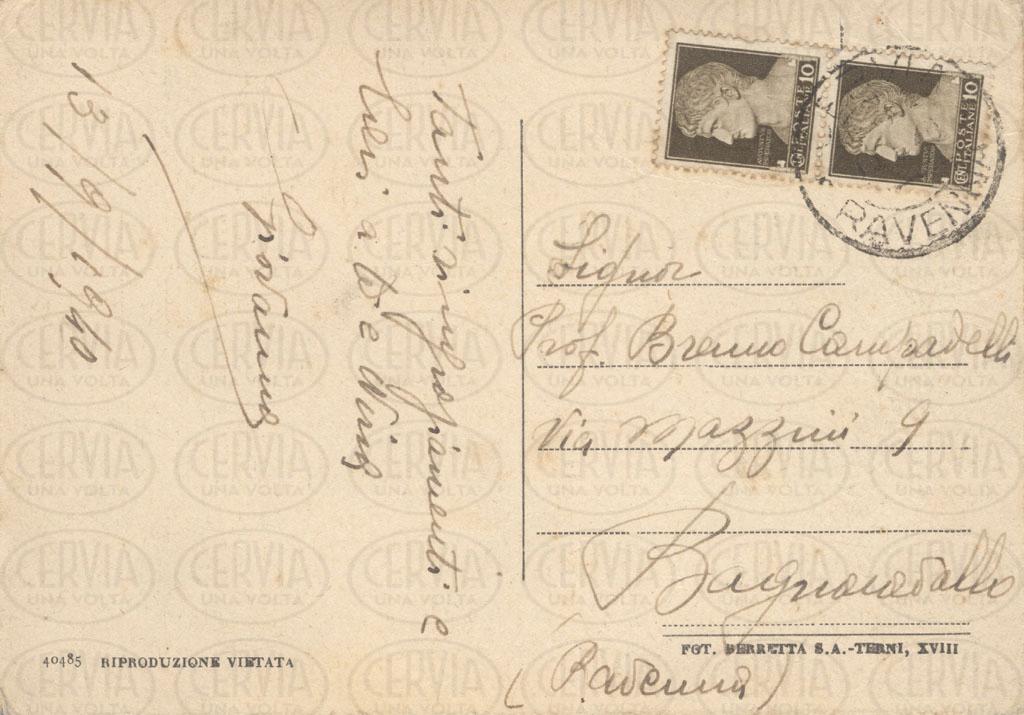 Tanti ringraziamenti e
saluti a te e Nino
Giovanna
13/9/1940
POSTE ITALIANE 10
POSTE ITALIANE 10
RAVENNA
Signor
Prof. Bruno Campadelli
Via Mazzini 9
Bagnacavallo
(Ravenna)
40485 RIPRODUZIONE VIETATA
FOT. BERRETTA S.A.-TERNI, XVIII
CERVIA
UNA VOLTA